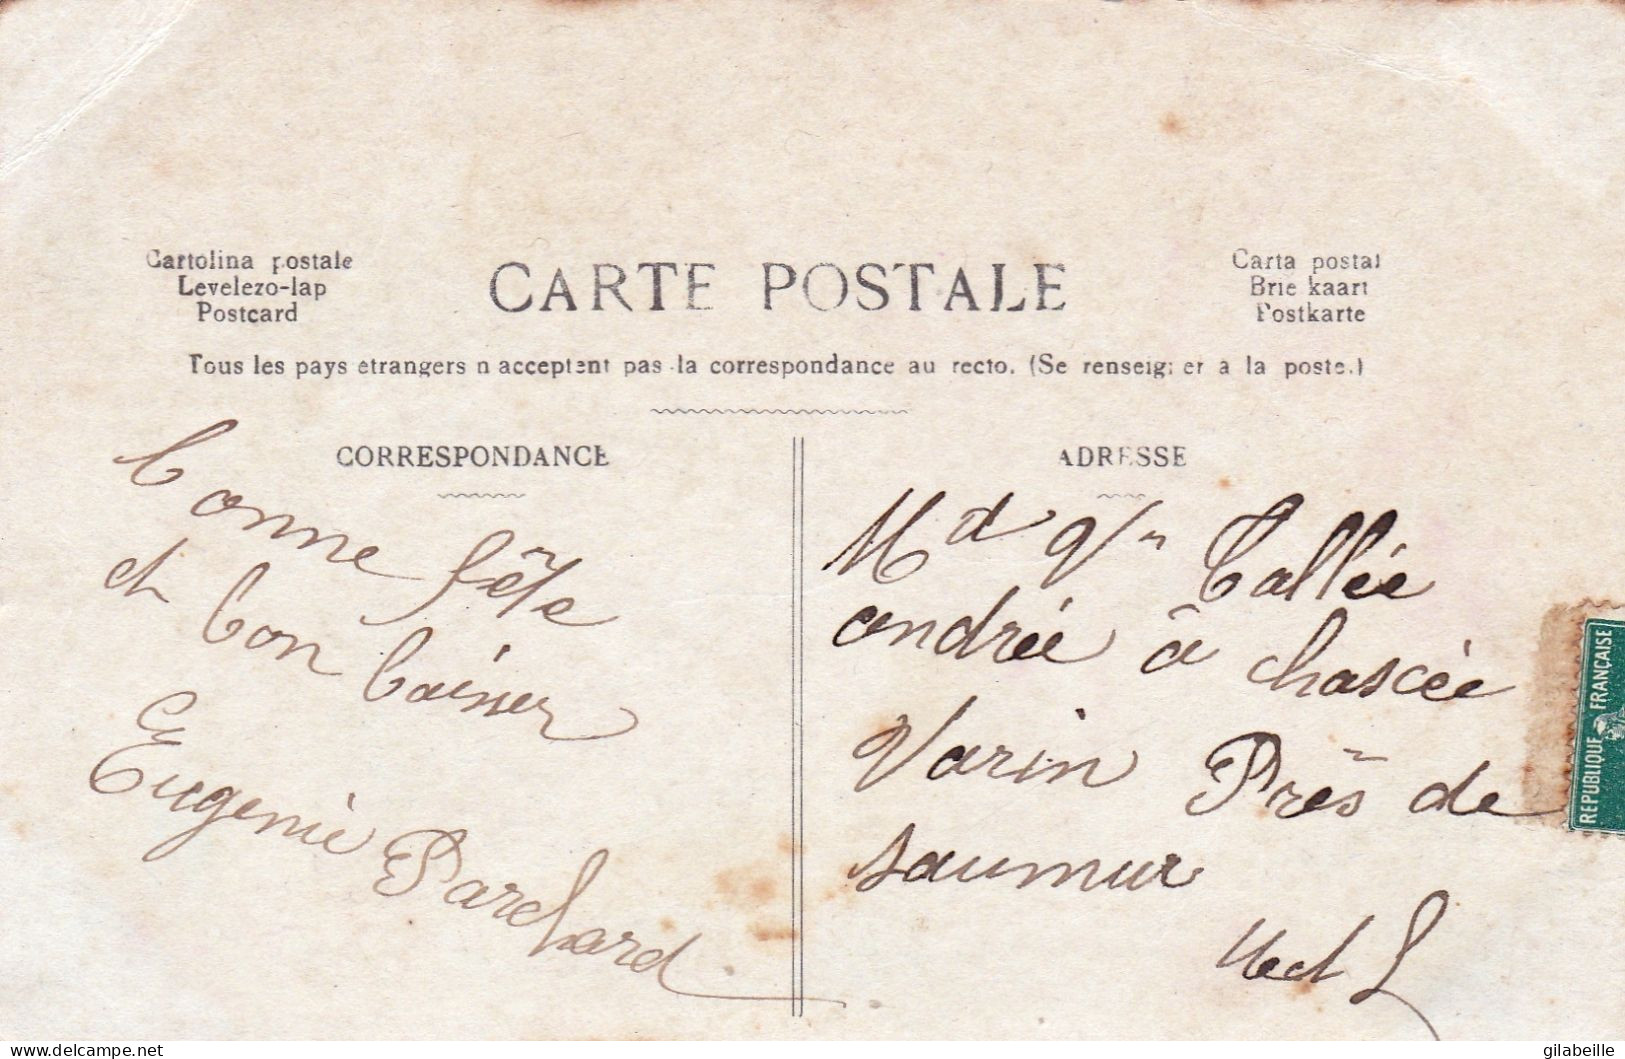 Cartolina postale
Levelezo-lap
Postcard
CARTE POSTALE
Carta postal
Brie kaart
Postkarte
Tous les pays etrangers n acceptent pas la correspondance au recto. (Se renseigner à la poste.)
CORRESPONDANCE
bonne fête
et bon baiser
Eugenie Parchard
ADRESSE
Md Vn Tallée
andrée à chascée
Varin Près de
saumur
REPUBLIQUE FRANÇAISE
delcampe.net
gilabeille